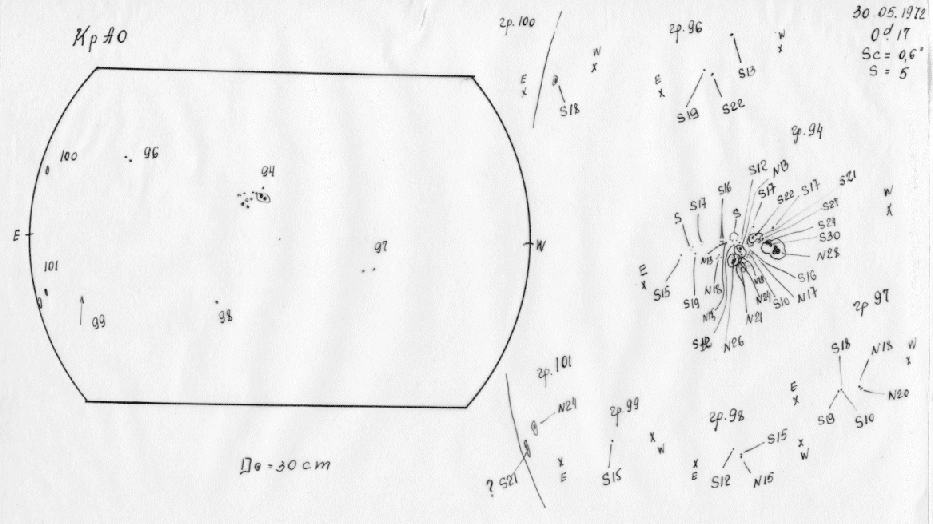 КрАО
гр.100
E
W
S18
гр.96
E
W
S13
S19
S22
30.05.1972
0d.17
Sc = 0,6"
S = 5
100
96
94
E
W
97
101
99
98
D⊙ = 30 cm
гр.94
S12
N13
S16
S17
S22
S17
S21
S17
S
S
W
S30
N28
E
S15
S19
N18
S16
N17
S10
N21
N26
гр.97
S18
N18
W
E
N20
S19
S10
гр.101
N24
? S21
E
гр.99
W
S15
гр.98
S15
E
S12
N15
W